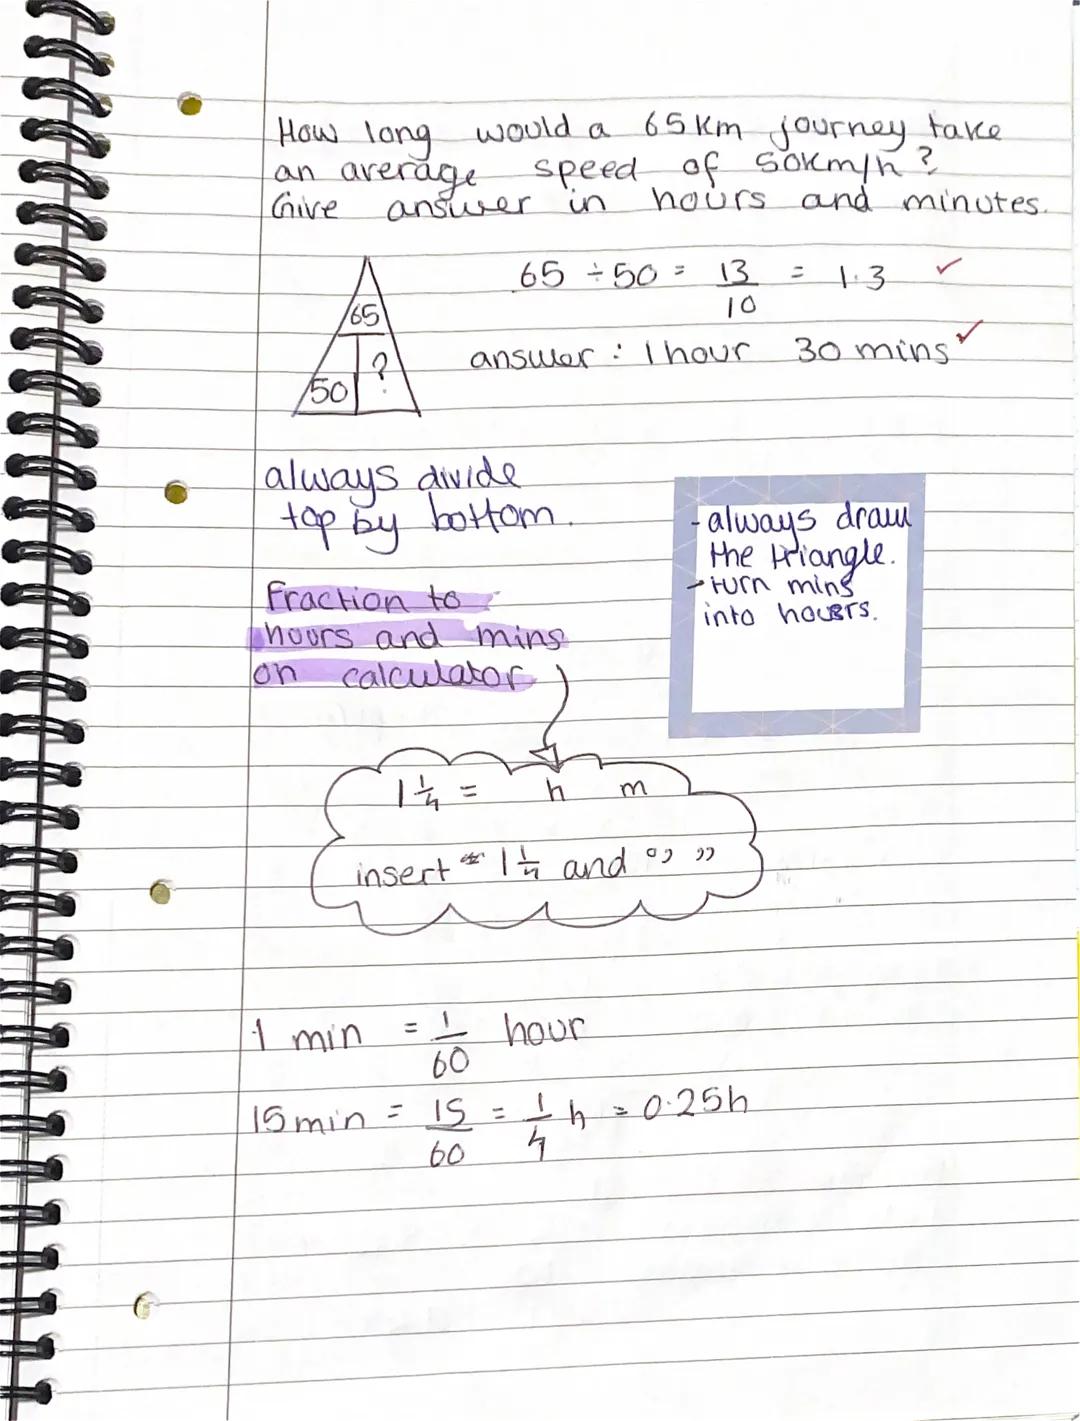 How long would a 65km journey take
an average speed of 50km/h?
Give answer in hours and minutes.
65 ÷ 50 = 13/10 = 1.3 ✓
answer : 1 hour 30 mins ✓
65
50 ?
always divide
top by bottom.
- always draw
the triangle.
- turn mins
into hours.
Fraction to
hours and mins
on calculator
1 1/4 = h m
insert 1 1/4 and °, ,,
1 min = 1/60 hour
15 min = 15/60 = 1/4 h = 0.25h